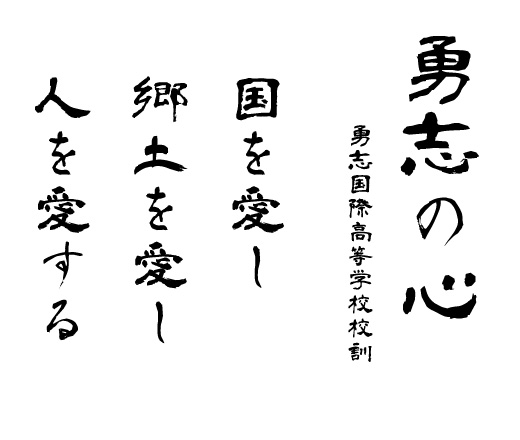 勇志の心
勇志国際高等学校校訓
国を愛し
郷土を愛し
人を愛する